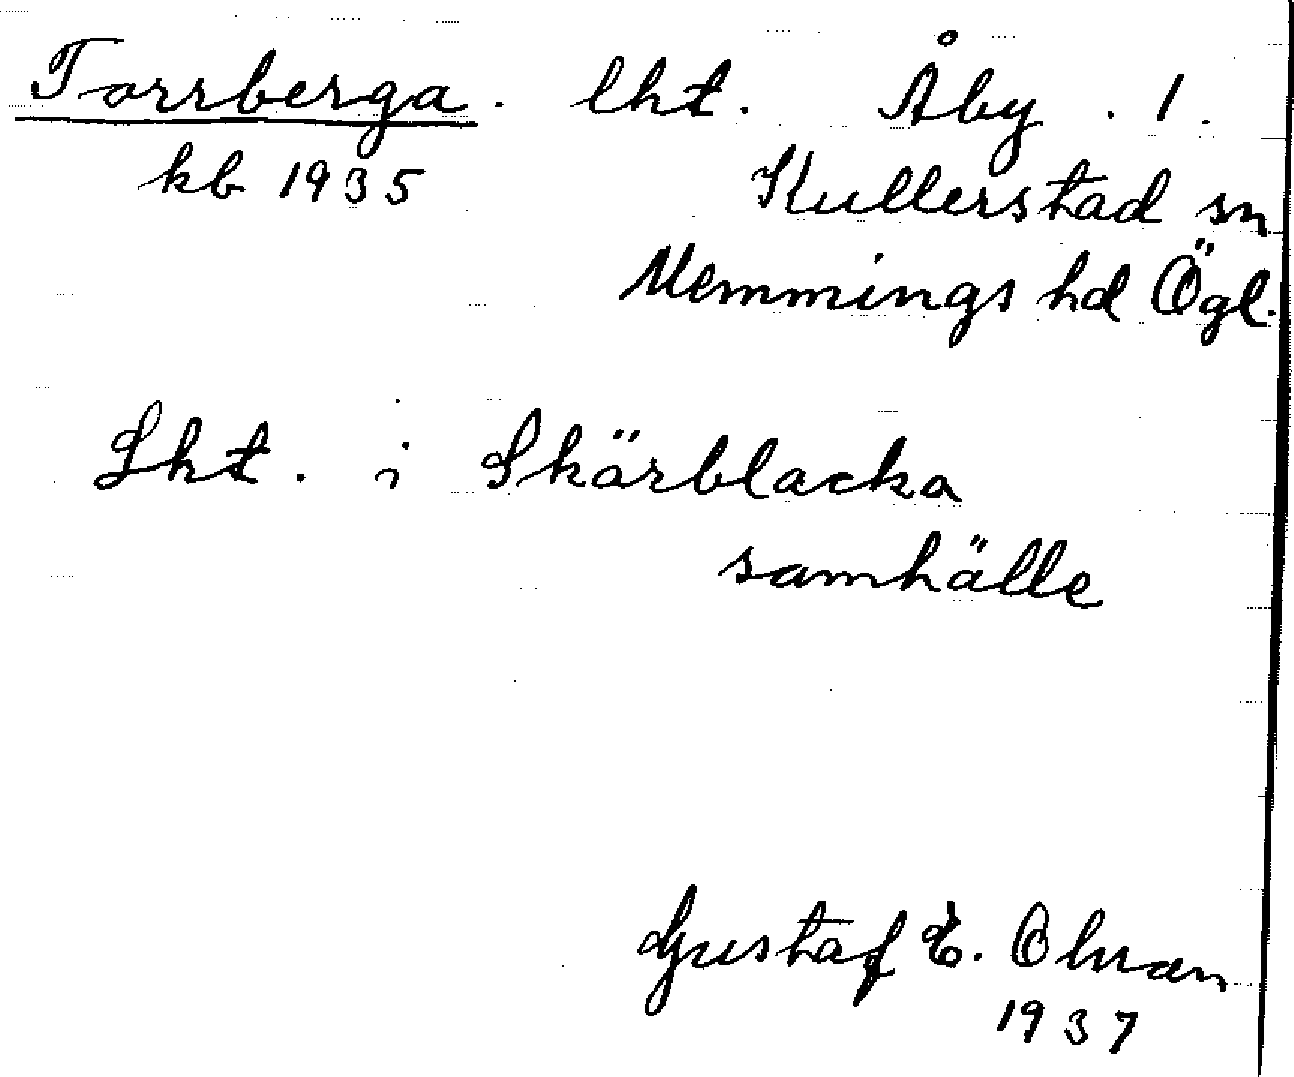 Torrberga. lht. Åby. 1.
kb 1935 Kullerstad sn
Memmings hd Ögl.
Lht. i Skärblacka
samhälle
Gustaf E. Olman
1937